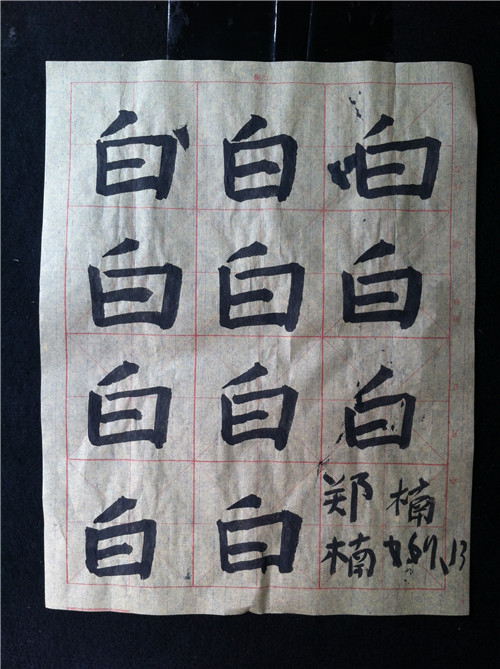 白 白 白
白 白 白
白 白 白
白 白
郑 楠
楠 13